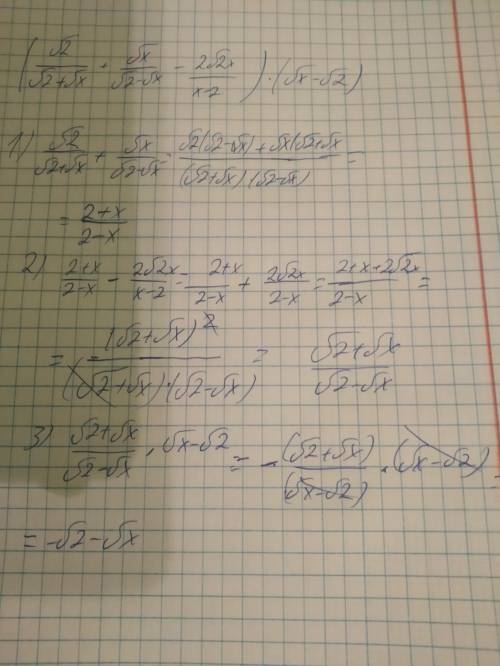 (√2/(√2+√x) + √x/(√2-√x) - 2√2x/(x-2)) · (√x-√2)
1) √2/(√2+√x) + √x/(√2-√x) = (√2(√2-√x)+√x(√2+√x)/((√2+√x)·(√2-√x)) =
= (2+x)/(2-x)
2) (2+x)/(2-x) - 2√2x/(x-2) = (2+x)/(2-x) + 2√2x/(2-x) = (2+x+2√2x)/(2-x) =
= (√2+√x)²/((√2+√x)·(√2-√x)) = (√2+√x)/(√2-√x)
3) (√2+√x)/(√2-√x) · √x-√2 = -(√2+√x)/(√x-√2) · (√x-√2) =
= -√2-√x